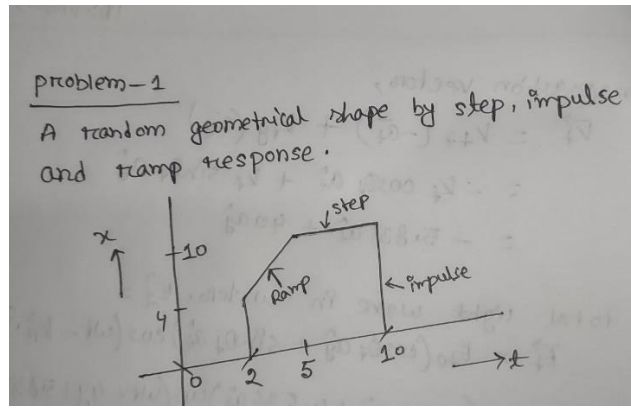 problem-1
A random geometrical shape by step, impulse
and ramp response.
step
x
10
Ramp
impulse
4
0
2
5
10
t